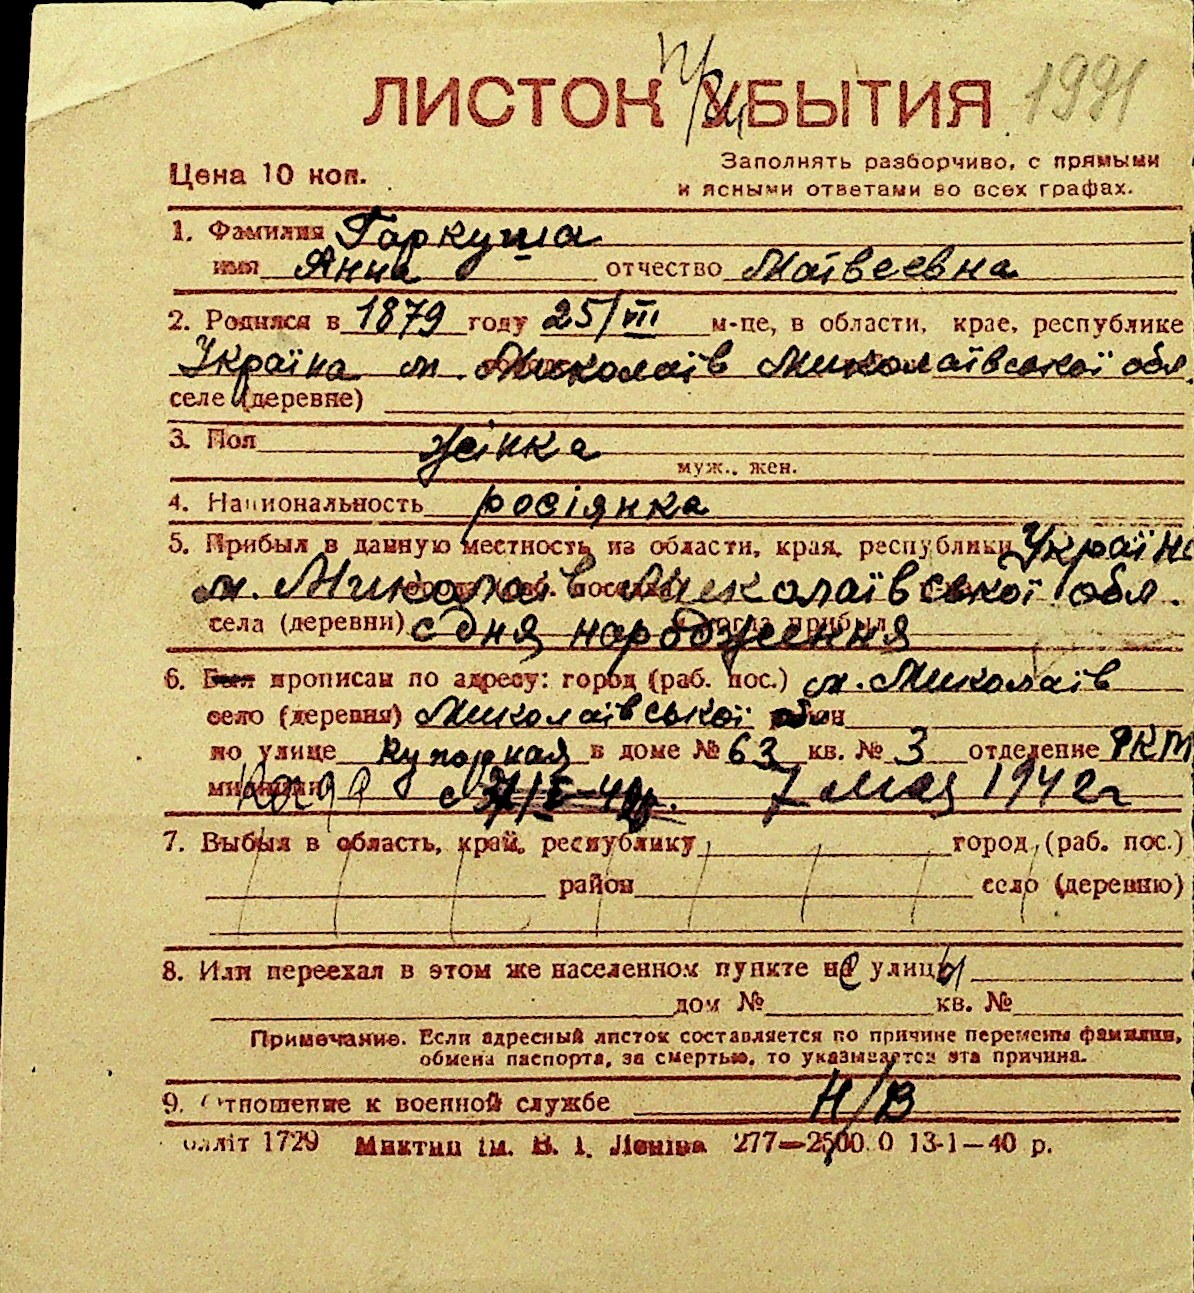 ЛИСТОК УБЫТИЯ 1991
Цена 10 коп.
Заполнять разборчиво, с прямыми
и ясными ответами во всех графах.
1. Фамилия Гаркуша
имя Анна отчество Матвеевна
2. Родился в 1879 году 25/VIII м-це, в области, крае, республике
Україна м. Миколаїв Миколаївської обл.
селе (деревне)
3. Пол жінка
муж., жен.
4. Национальность росіянка
5. Прибыл в данную местность из области, края, республики Україна
м. Миколаїв Миколаївської обл.
села (деревни) с дня народження
6. Был прописан по адресу: город (раб. пос.) м. Миколаїв
село (деревня) Миколаївської
по улице Купорная в доме № 63 кв. № 3 отделение РКМ
7 мая 1942 г
7. Выбыл в область, край, республику город, (раб. пос.)
район село (деревню)
8. Или переехал в этом же населенном пункте не улицы
дом № кв. №
Примечание. Если адресный листок составляется по причине перемены фамилии,
обмена паспорта, за смертью, то указывается эта причина.
9. Отношение к военной службе Н/В
бллiт 1729 Миктип iм. В. I. Ленiна 277—2500.0 13-1—40 р.